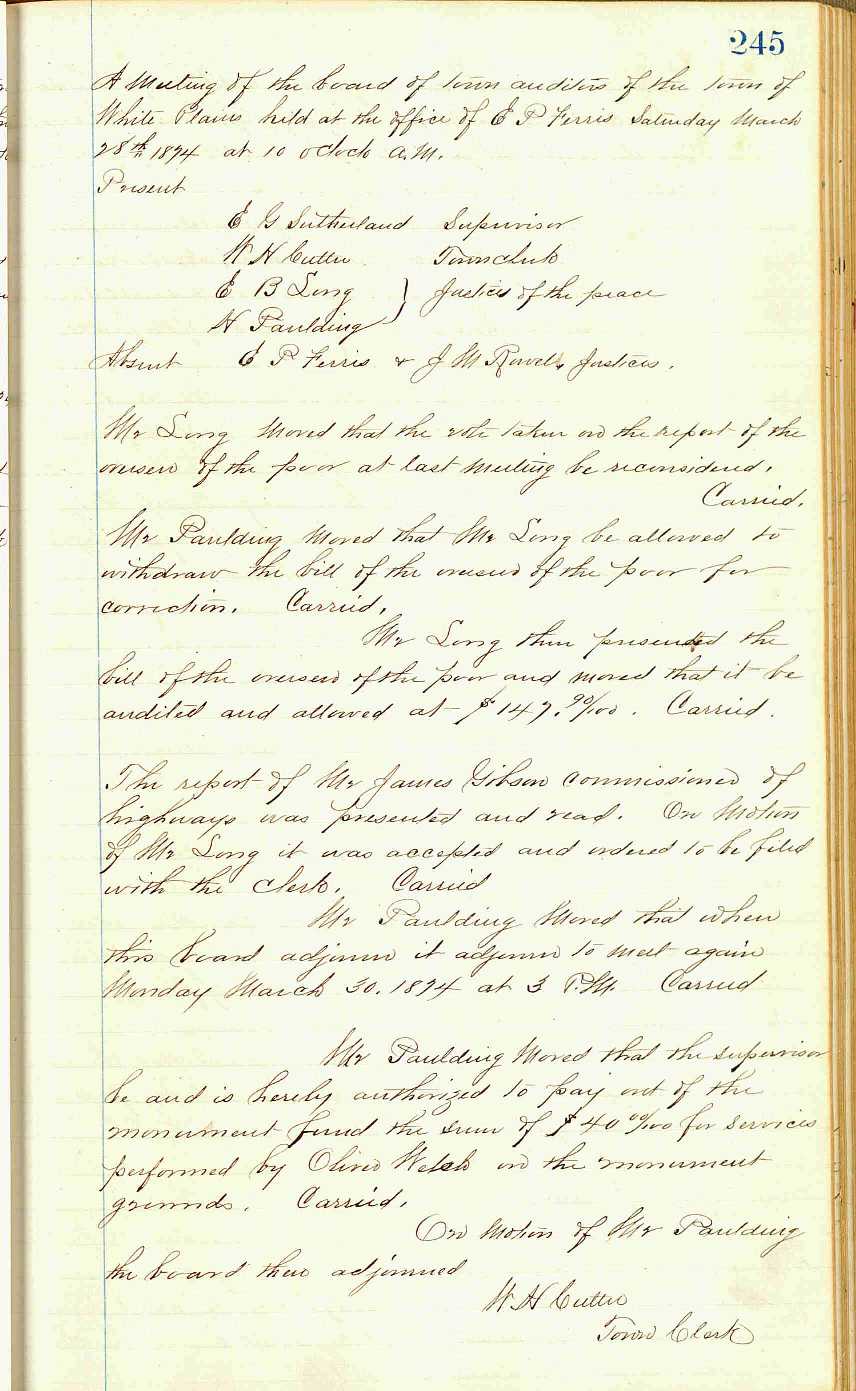 245
A Meeting of the board of town auditors of the town of
White Plains held at the office of E P Ferris Saturday March
28th 1874 at 10 oclock A.M.
Present
E G Sutherland Supervisor
W H Cutler Town clerk
E B Long } Justices of the peace
N Paulding
Absent E P Ferris & J M Rowell Justices.
Mr Long Moved that the vote taken on the report of the
overseer of the poor at last Meeting be reconsidered.
Carried.
Mr Paulding Moved that Mr Long be allowed to
withdraw the bill of the overseer of the poor for
correction. Carried.
Mr Long then presented the
bill of the overseer of the poor and moved that it be
audited and allowed at $147.90/100. Carried.
The report of Mr James Gibson commissioner of
highways was presented and read. On Motion
of Mr Long it was accepted and ordered to be filed
with the clerk. Carried
Mr Paulding Moved that when
this board adjourn it adjourn to meet again
Monday March 30. 1874 at 3 P.M. Carried
Mr Paulding Moved that the supervisor
be and is hereby authorized to pay out of the
monument fund the sum of $40 00/100 for services
performed by Oliver Welch on the monument
grounds. Carried.
On Motion of Mr Paulding
the board then adjourned
W H Cutler
Town Clerk